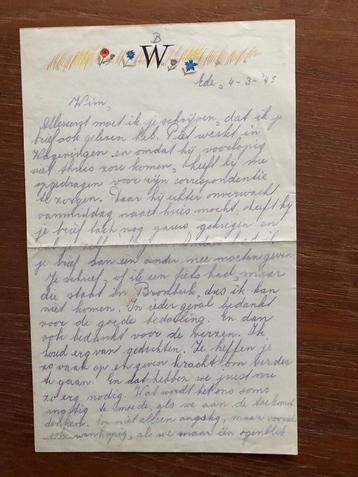 B
W
Ede, 4-3-'45
Wim,
Allereerst moet ik je schrijven, dat ik je
brief ook gelezen heb. Piet werkt in
Wageningen en omdat hij voorlopig
niet thuis zou komen, heeft hij me
opgedragen voor zijn correspondentie
te zorgen. Daar hij echter onverwacht
vanmiddag naar huis mocht, heeft hij
je brief toch nog gauw gekregen en
je brief aan een ander mee moeten geven.
Je schreef, of ik een fiets had, maar
die staat in Broolbeek, dus ik kan
niet komen. In ieder geval bedankt
voor de goede bedoeling. En dan
ook bedankt voor de verzen. Ik
houd erg van gedichten. Ze heffen je
zo vaak op en geven kracht om verder
te gaan. En dat hebben we juist nu
zo erg nodig. Wat wordt het ons soms
angstig te moede, als we aan de toekomst
denken. En niet alleen angstig, maar vooral
ook wanhopig, als we maar één ogenblik